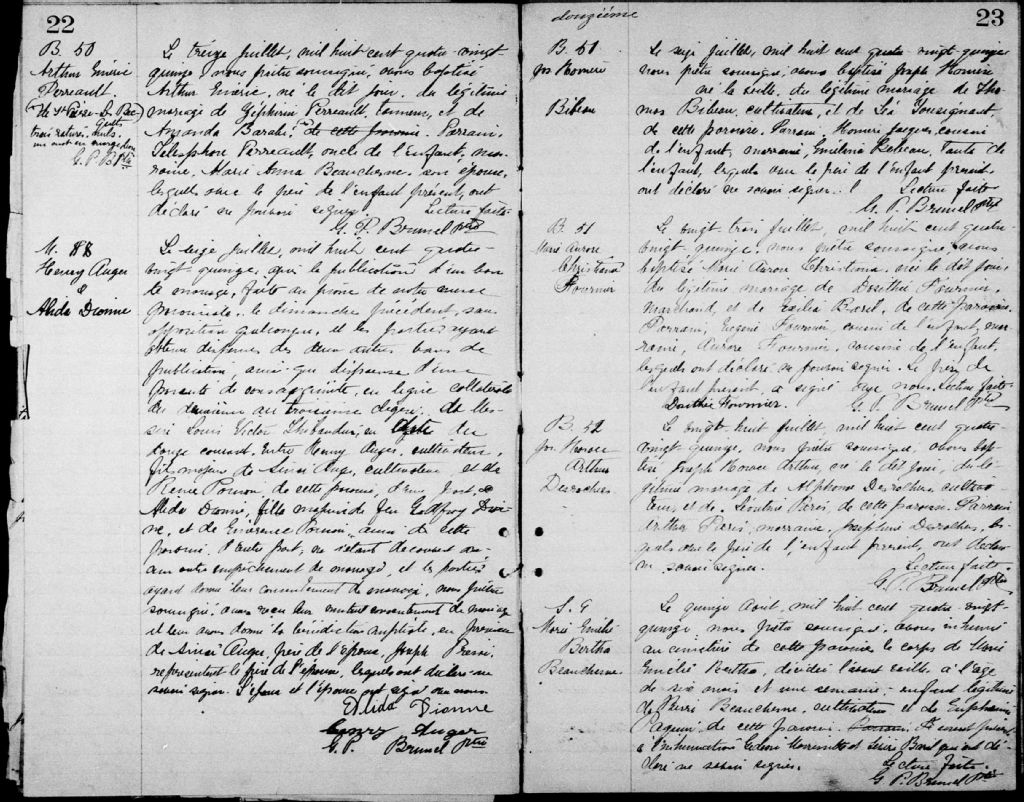 22
B. 50
Arthur Émérie
Perreault.
G. P. B. Ptre
Le treize juillet, mil huit cent quatre-vingt
quinze nous prêtre soussigné, avons baptisé
Arthur Émérie, né le dit jour du légitime
mariage de Zéphirin Perreault, et de
Amanda Barabé, de cette paroisse. Parrain,
Télesphore Perreault, oncle de l'enfant, mar-
raine, Marie Anna Beauchesne, son épouse,
lesquels avec le père de l'enfant présent, ont
déclaré ne pouvoir signer. Lecture faite.
G. P. Brunel Ptre
M.
Henry Auger
&
Alida Dionne
Le seize juillet, mil huit cent quatre-
vingt quinze, après la publication d'un ban
de mariage, faite au prône de notre messe
paroissiale, le dimanche précédent, sans
opposition quelconque, et les parties ayant
obtenu dispense des deux autres bans de
publication, ainsi que dispense d'une
parenté de consanguinité, en ligne collatérale
du deuxième au troisième degré, de Mes-
sire Louis Victor Thibaudier, en date du
douze courant, Entre Henry Auger, cultivateur,
fils majeur de cultivateur et de
de cette paroisse, d'une part, &
Alida Dionne, fille mineure de feu Godfroy Dion-
ne, et de Émérence aussi de cette
paroisse, d'autre part, ne s'étant découvert au-
cun autre empêchement de mariage, et les parties
ayant donné leur consentement de mariage, nous prêtre
soussigné, avons reçu leur mutuel consentement de mariage
et leur avons donné la bénédiction nuptiale, en présence
de Auger, père de l'époux, Joseph
représentant le père de l'épouse, lesquels ont déclaré ne
savoir signer. L'époux et l'épouse ont signé avec nous.
Alida Dionne
Henry Auger
G. P. Brunel Ptre
douzième
23
B. 51
Jos Homère
Bibeau
Le seize juillet, mil huit cent quatre-vingt-quinze
nous prêtre soussigné, avons baptisé Joseph Homère
né la veille, du légitime mariage de Tho-
mas Bibeau, cultivateur et de Léa Fousignant,
de cette paroisse. Parrain Homère Jacques, cousin
de l'enfant, marraine, Émélina tante de
l'enfant, lesquels avec le père de l'enfant présent,
ont déclaré ne savoir signer. Lecture faite
G. P. Brunel Ptre
B. 51
Marie Aurore
Christiana
Fournier
Le vingt-trois juillet, mil huit cent quatre-
vingt quinze, nous prêtre soussigné, avons
baptisé Marie Aurore Christiana, née le dit jour,
du légitime mariage de Dosithée Fournier,
marchand, et de Exilia Baril, de cette paroisse.
Parrain, Eugène Fournier, cousin de l'enfant, mar-
raine, Aurore Fournier, cousine de l'enfant,
lesquels ont déclaré ne pouvoir signer. Le père de
l'enfant présent, a signé avec nous. Lecture faite
Dosithée Fournier. G. P. Brunel Ptre
B. 52
Jos Horace
Arthur
Desrochers
Le vingt huit juillet, mil huit cent quatre-
vingt quinze, nous prêtre soussigné, avons bap-
tisé Joseph Horace Arthur, né le dit jour, du lé-
gitime mariage de Alphonse Desrochers, cultiva-
teur, et de Léontine Paris, de cette paroisse. Parrain
Arthur Paris, marraine, Joséphine Desrochers, les-
quels avec le père de l'enfant présent, ont déclaré
ne savoir signer. Lecture faite.
G. P. Brunel Ptre
S. 9
Marie Émélie
Bertha
Beauchesne
Le quinze août, mil huit cent quatre vingt
quinze, nous prêtre soussigné, avons inhumé
au cimetière de cette paroisse le corps de Marie
Émélie Bertha, décédée l'avant veille à l'âge
de six mois et une semaine, enfant légitime
de Pierre Beauchesne, cultivateur et de Euphémie
de cette paroisse. Parrain. Étaient présents
à l'inhumation et Baril qui ont dé-
claré ne savoir signer. Lecture faite.
G. P. Brunel Ptre